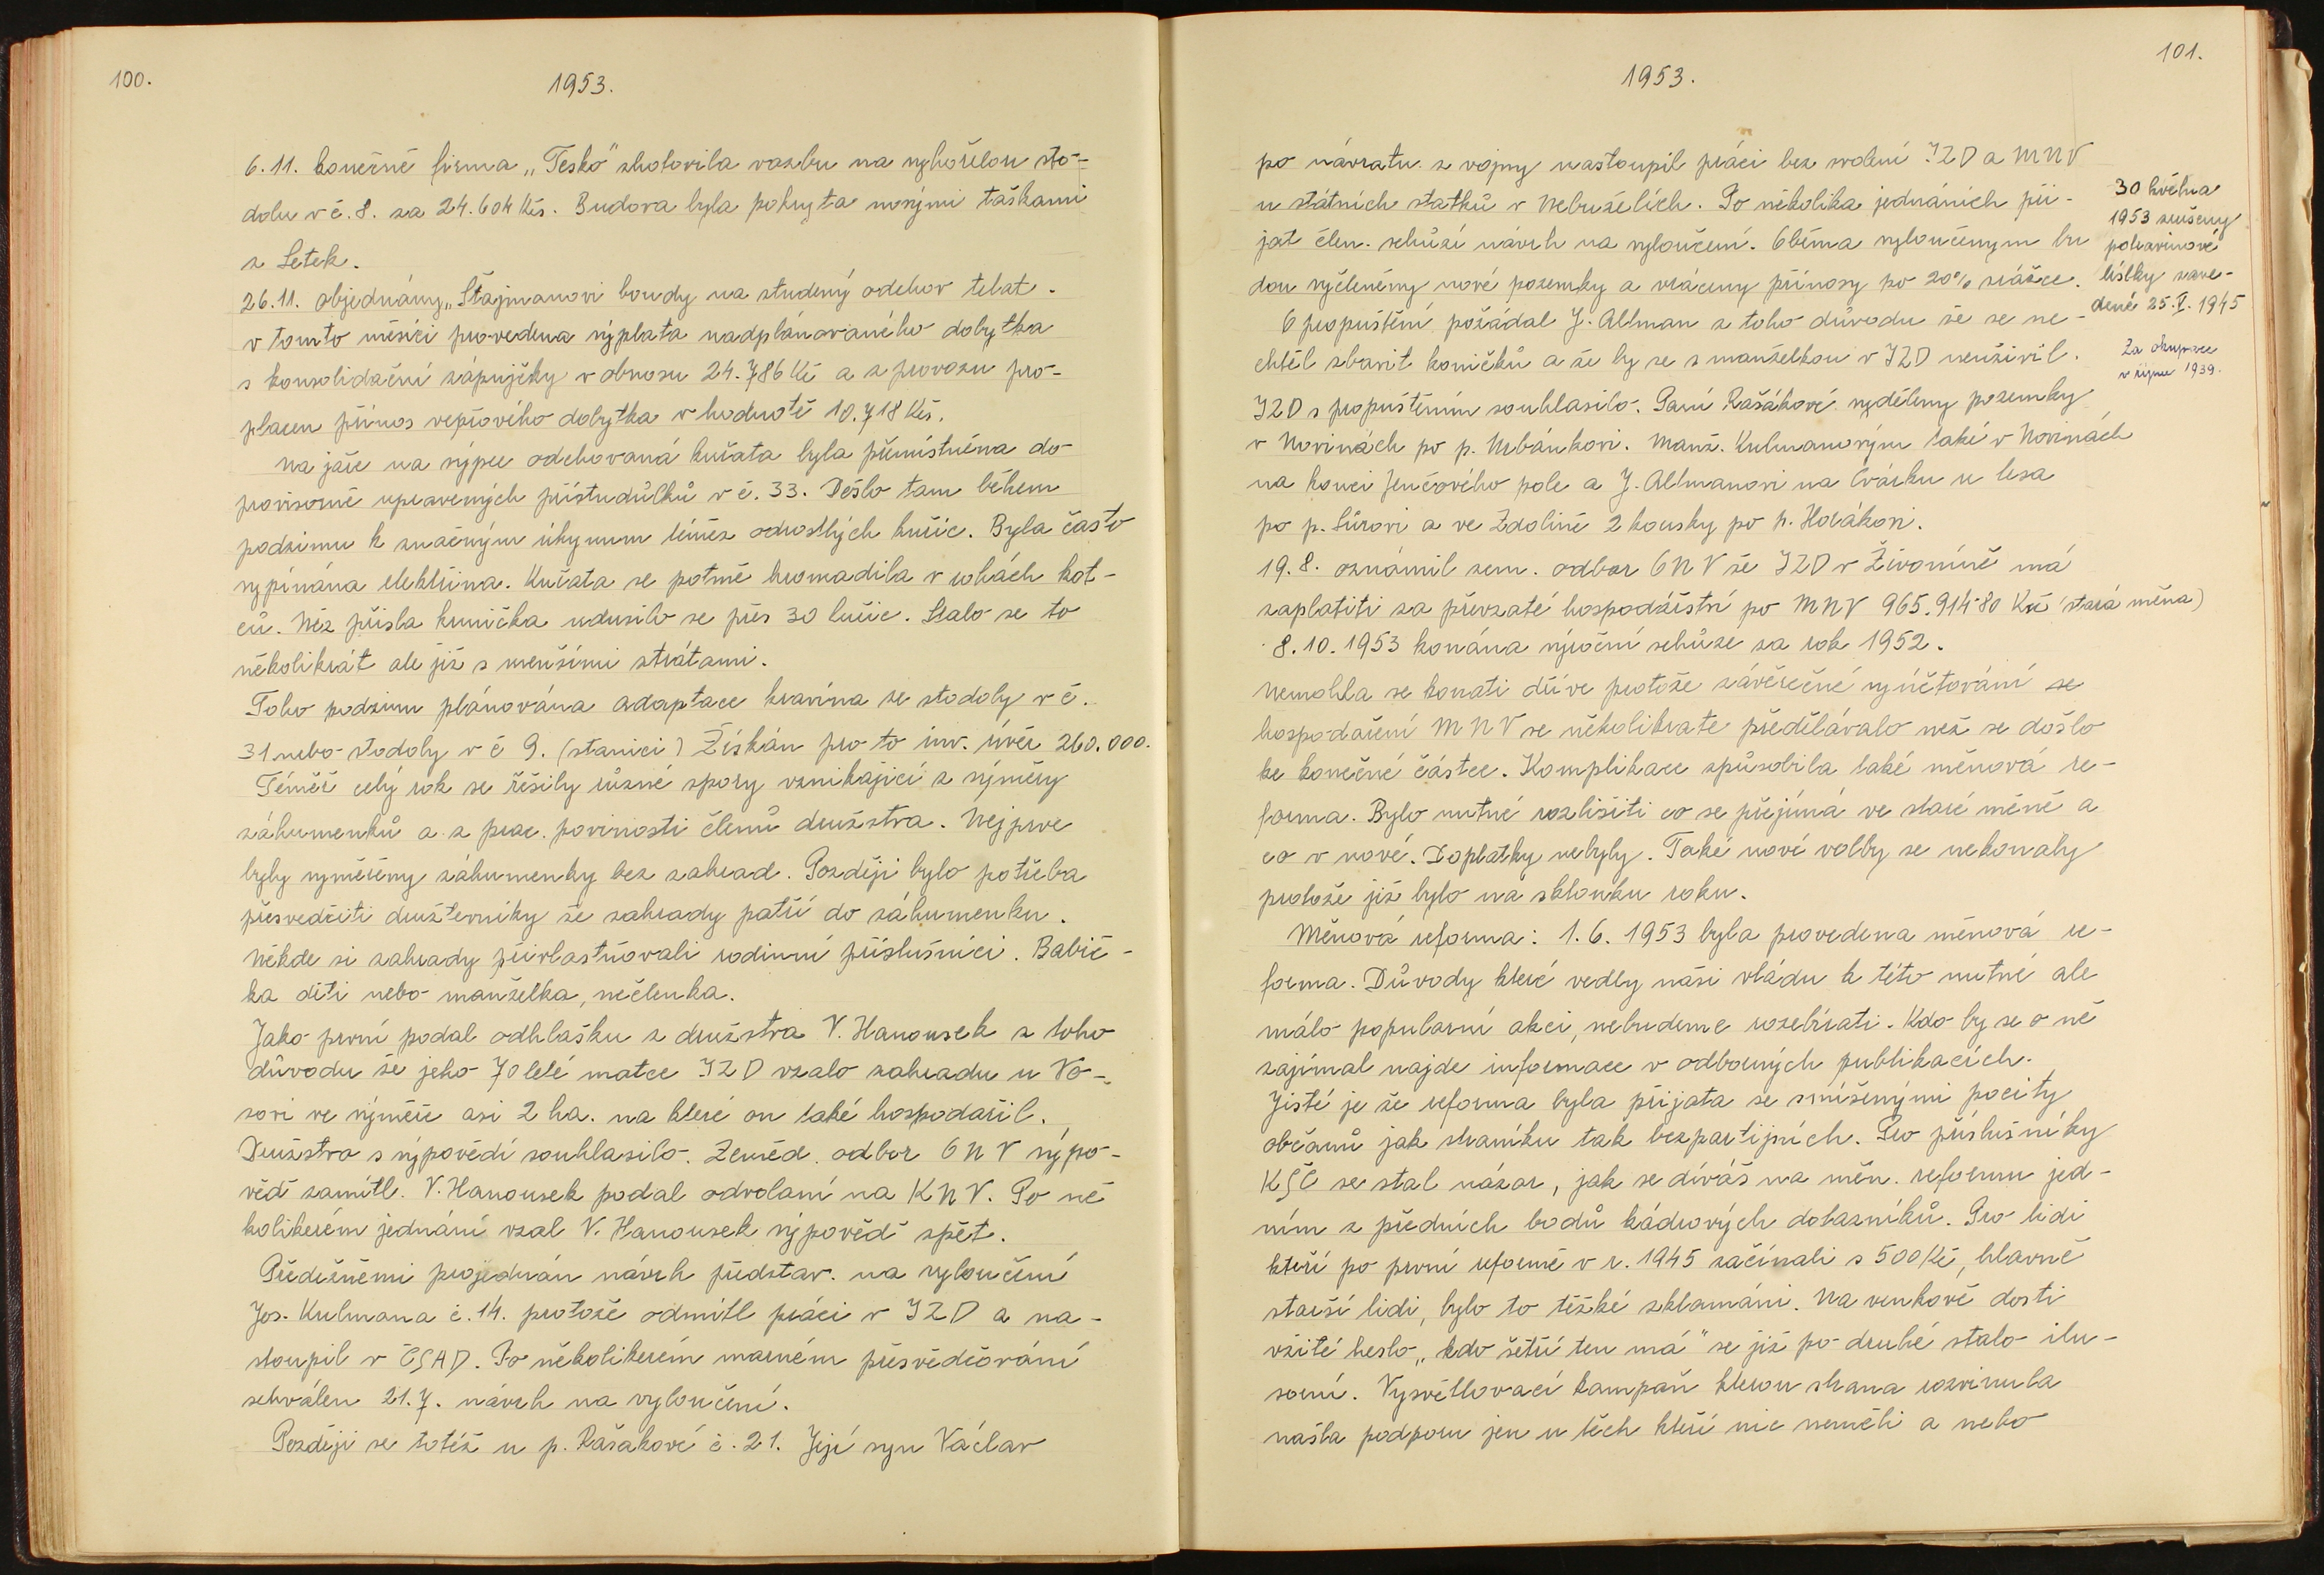 100.
1953.
6.11. konečně firma „Tesko" zhotovila vazbu na vyhořelou sto-
dolu v č. 8. za 24.604 Kčs. Budova byla pokryta novými taškami
z Letek.
26.11. objednány „Štajmanovi boudy na studený odchov telat.
v tomto měsíci provedena výplata nadplánovaného dobytka
s konsolidační zápujčky v obnosu 24.786 Kč a z provozu pro-
placen přínos vepřového dobytka v hodnotě 10.718 Kčs.
Na jaře na sýpce odchovaná kuřata byla přemístněna do
provisorně upravených přístudůlků v č. 33. Došlo tam během
podzimu k značným úhynum téměř odrostlých kuřic. Byla často
vypínána elektřina. Kuřata se potmě hromadila v rohách kot-
ců. Než přišla krmička udusilo se přes 30 kuřic. Stalo se to
několikrát ale již s menšími ztrátami.
Toho podzimu plánována adaptace kravína ze stodoly v č.
31 nebo stodoly v č 9. (stanici) Získán pro to inv. úvěr 260.000.
Téměř celý rok se řešily různé spory vznikající z výměry
záhumenků a z prac. povinosti členů družstva. Nejprve
byly vyměřeny záhumenky bez zahrad. Později bylo potřeba
přesvedčiti družterníky že zahrady patří do záhumenku.
Někde si zahrady přivlastňovali rodinní příslušníci. Babič-
ka děti nebo manželka, nečlenka.
Jako první podal odhlášku z družstva V. Hanousek z toho
důvodu že jeho 70 leté matce JZD vzalo zahradu u Vo-
zovi ve výměře asi 2 ha. na které on také hospodařil.
Družstvo s výpovědí souhlasilo. Zeměd. odbor ONV výpo-
věď zamítl. V. Hanousek podal odvolaní na KNV. Po ně
kolikerém jednání vzal V. Hanousek výpověď zpět.
Předežněmi projednán návrh představ. na vyloučení
Jos. Kulmana č. 14. protože odmítl práci v JZD a na-
stoupil v ČSAD. Po několikerém marném přesvědčování
schválen 21.7. návrh na vyloučení.
Později se totéž u p. Rašakové č. 21. Její syn Václav
101.
1953.
po návratu z vojny nastoupil práci bez svolení JZD a MNV
u státních statků v Nebuželích. Po několika jednáních při-
jat člen. schůzí návrh na vyloučení. Oběma vyloučenym bu
dou vyčleněny nové pozemky a vráceny přínosy po 20% srážce.
O propuštění požádal J. Altman z toho důvodu že se ne-
chtěl zbavit koničků a že by se s manželkou v JZD neuživil.
JZD s propuštěním souhlasilo. Paní Rašákové vyděleny pozemky
v Novinách po p. Urbánkovi. Manž. Kulmanovým také v Novinách
na konci Jenčového pole a J. Altmanovi na Cvárku u lesa
po p. Sůrovi a ve Zdolině 2 kousky po p. Horákovi.
19.8. oznámil zem. odbor ONV že JZD v Živoníně má
zaplatiti za převzaté hospodářství po MNV 965.914˙80 Kč (stará měna)
8.10.1953 konána výroční schůze za rok 1952.
Nemohla se konati dříve protože závěrečné vyúčtování se
hospodaření MNV se několikrate předělávalo než se došlo
ke konečné částce. Komplikace způsobila také měnová re-
forma. Bylo nutné rozlišiti co se přejímá ve staré měně a
co v nové. Doplatky nebyly. Také nové volby se nekonaly
protože již bylo na sklonku roku.
Měnová reforma: 1.6.1953 byla provedena měnová re-
forma. Důvody které vedly naši vládu k této nutné ale
málo popularní akci, nebudeme rozebírati. Kdo by se o ně
zajímal najde informace v odborných publikacích.
Jisté je že reforma byla přijata se smíšenými pocity
občanů jak straníku tak bezpartijních. Pro příslušníky
KSČ se stal názor, jak se díváš na měn. reformu jed-
ním z předních bodů kádrových dotazníků. Pro lidi
kteří po první reformě v r. 1945 začínali s 500 Kč, hlavně
starší lidi, bylo to těžké zklamáni. Na venkově dosti
vžité heslo „kdo šetří ten má" se již po druhé stalo ilu-
sorní. Vysvětlovací kampaň kterou strana rozvinula
našla podporu jen u těch kteří nic neměli a nebo
30 května
1953 zrušeny
potravinové
lístky zave-
dené 25.V.1945
Za okupace
v říjnu 1939.